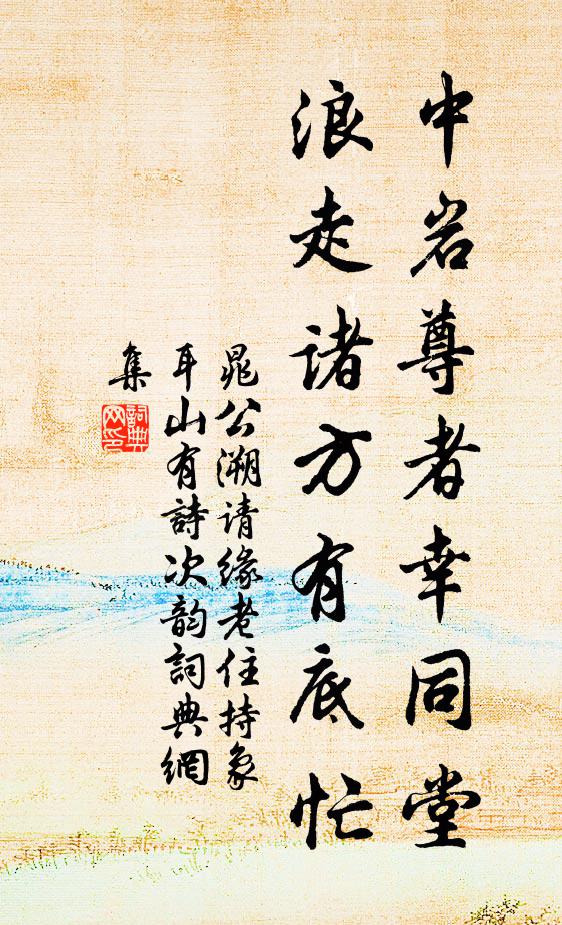 中岩尊者幸同堂
浪走诸方有底忙
晁公溯请缘老住持象
耳山有詩次韵詞典網
集
詞典
网印